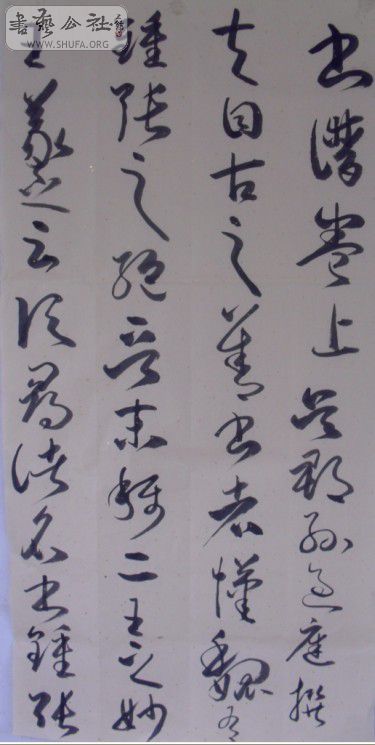 書譜卷上吳郡孫過庭撰
夫自古之善書者漢魏有
鍾張之絕晉末稱二王之妙
王羲之云頃尋諸名書鍾張
書藝公社
WWW.SHUFA.ORG